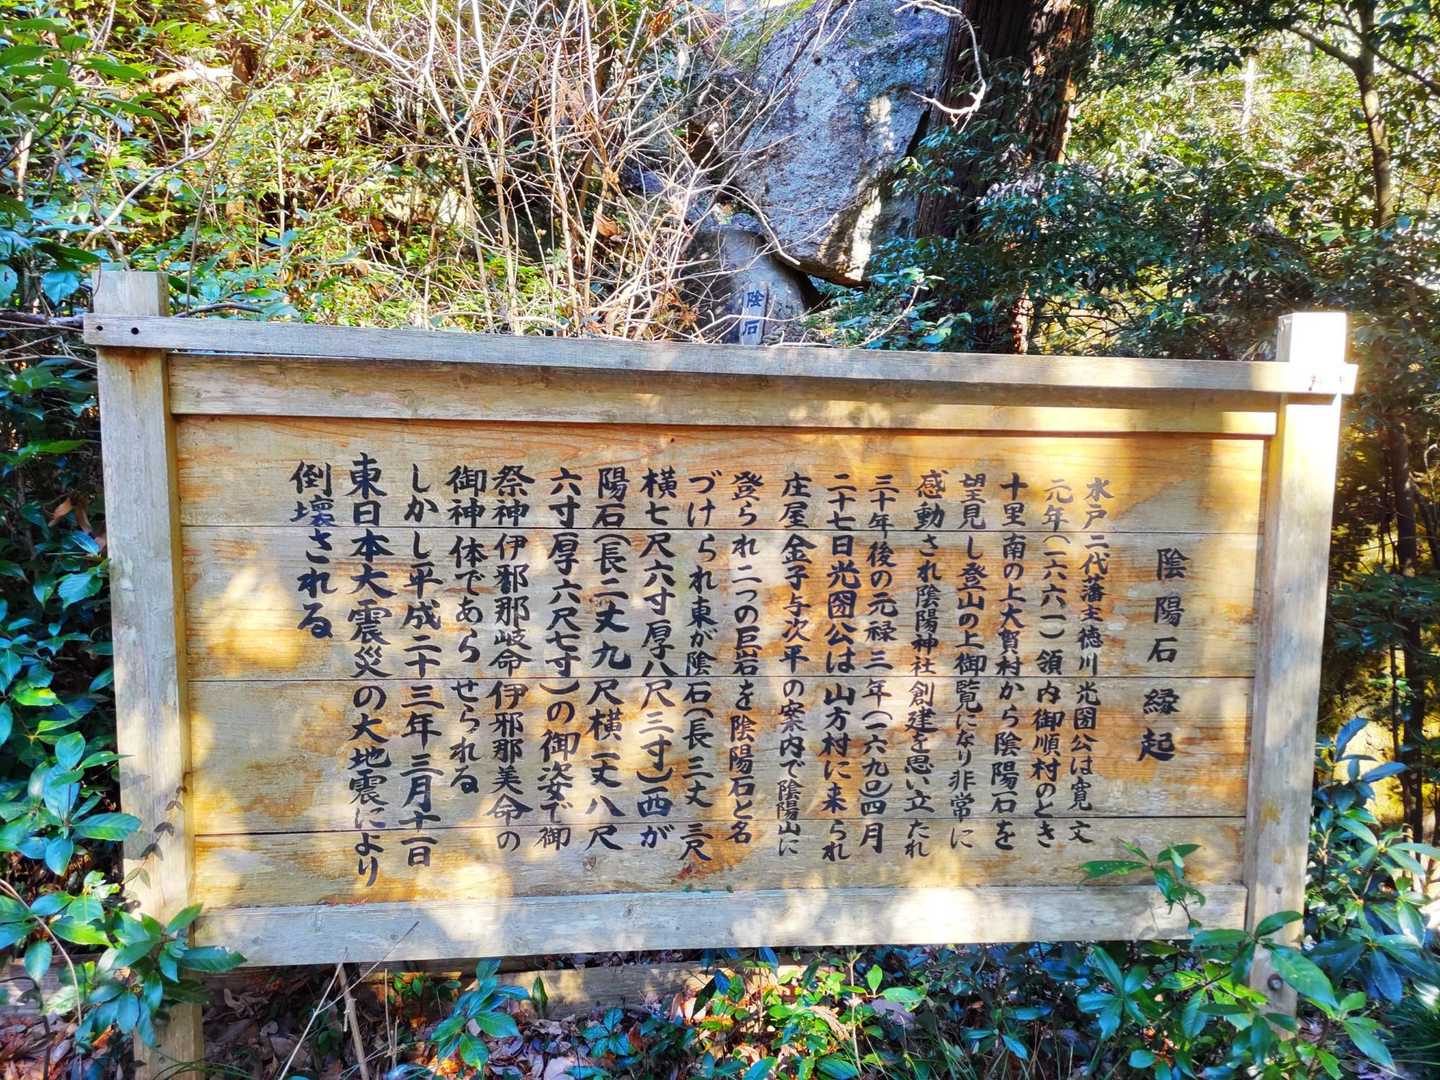 陰石
陰陽石 縁起
水戸二代藩主徳川光圀公は寛文
元年(一六六一)領内御順村のとき
十里南の上大賀村から陰陽石を
望見し登山の上御覧になり非常に
感動され陰陽神社創建を思い立たれ
三十年後の元禄三年(一六九〇)四月
二十七日光圀公は山方村に来られ
庄屋金子与次平の案内で陰陽山に
登られ二つの巨岩を陰陽石と名
づけられ東が陰石(長三丈三尺
横七尺六寸厚八尺三寸)西が
陽石(長二丈九尺横一丈八尺
六寸厚六尺七寸)の御姿で御
祭神伊邪那岐命伊邪那美命の
御神体であらせられる
しかし平成二十三年三月十一日
東日本大震災の大地震により
倒壊される